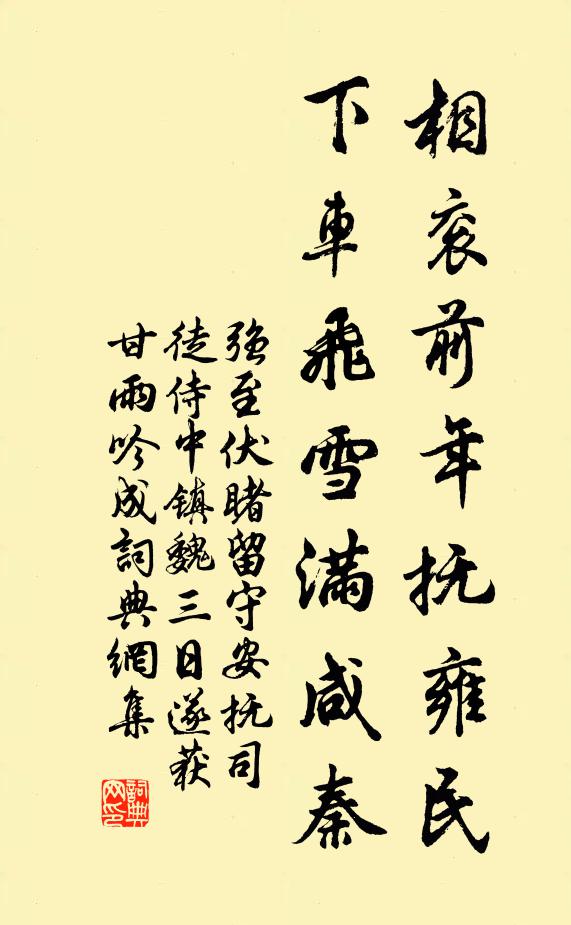 相衮前年抚雍民
下車飛雪满咸秦
强至伏睹留守安抚司
徒侍中镇魏三日遂获
甘雨吟成詞典網集
詞典
网印